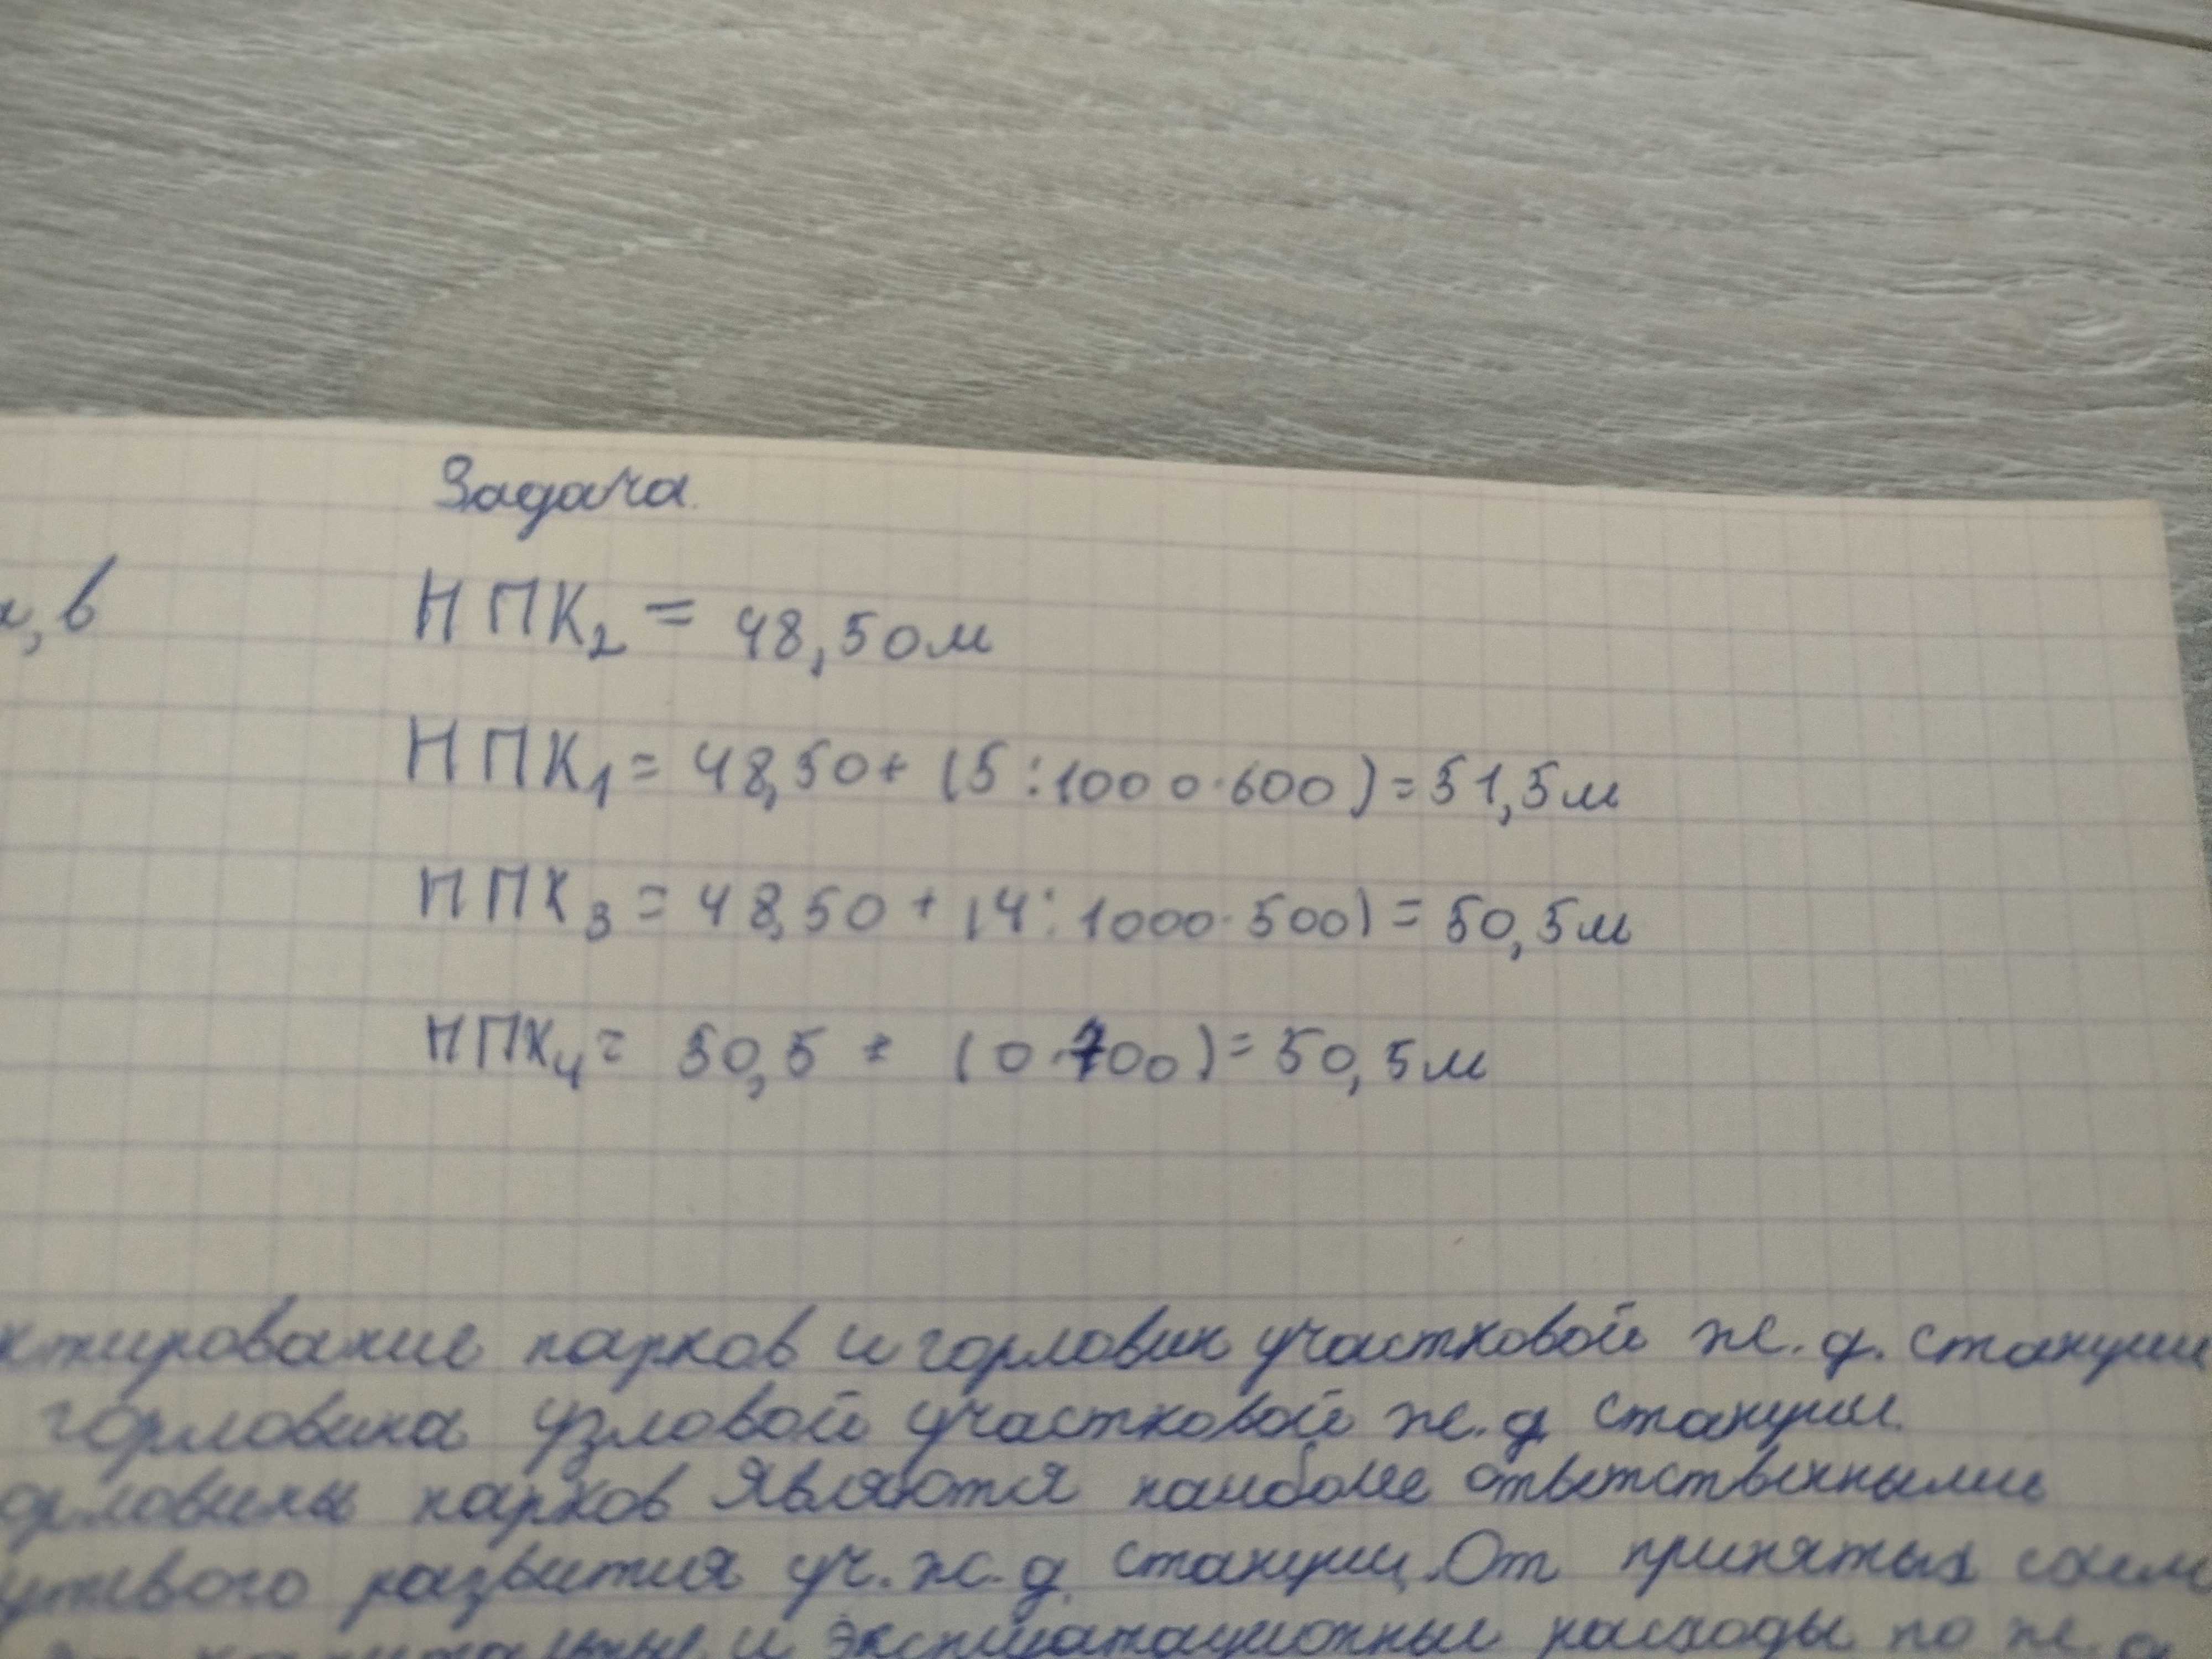 Задача.
, в
НПК₂ = 48,50м
НПК₁ = 48,50 + (5:1000·600) = 51,5м
НПК₃ = 48,50 + (4:1000·500) = 50,5м
НПК₄ = 50,5 + (0·700) = 50,5м
ктирование парков и горловин участковой ж.д. станции
горловина узловой участковой ж.д станции.
орловины парков являются наиболее ответственными
утевого развития уч.ж.д. станции. От принятых схем
и эксплуатационные расходы по ж.д